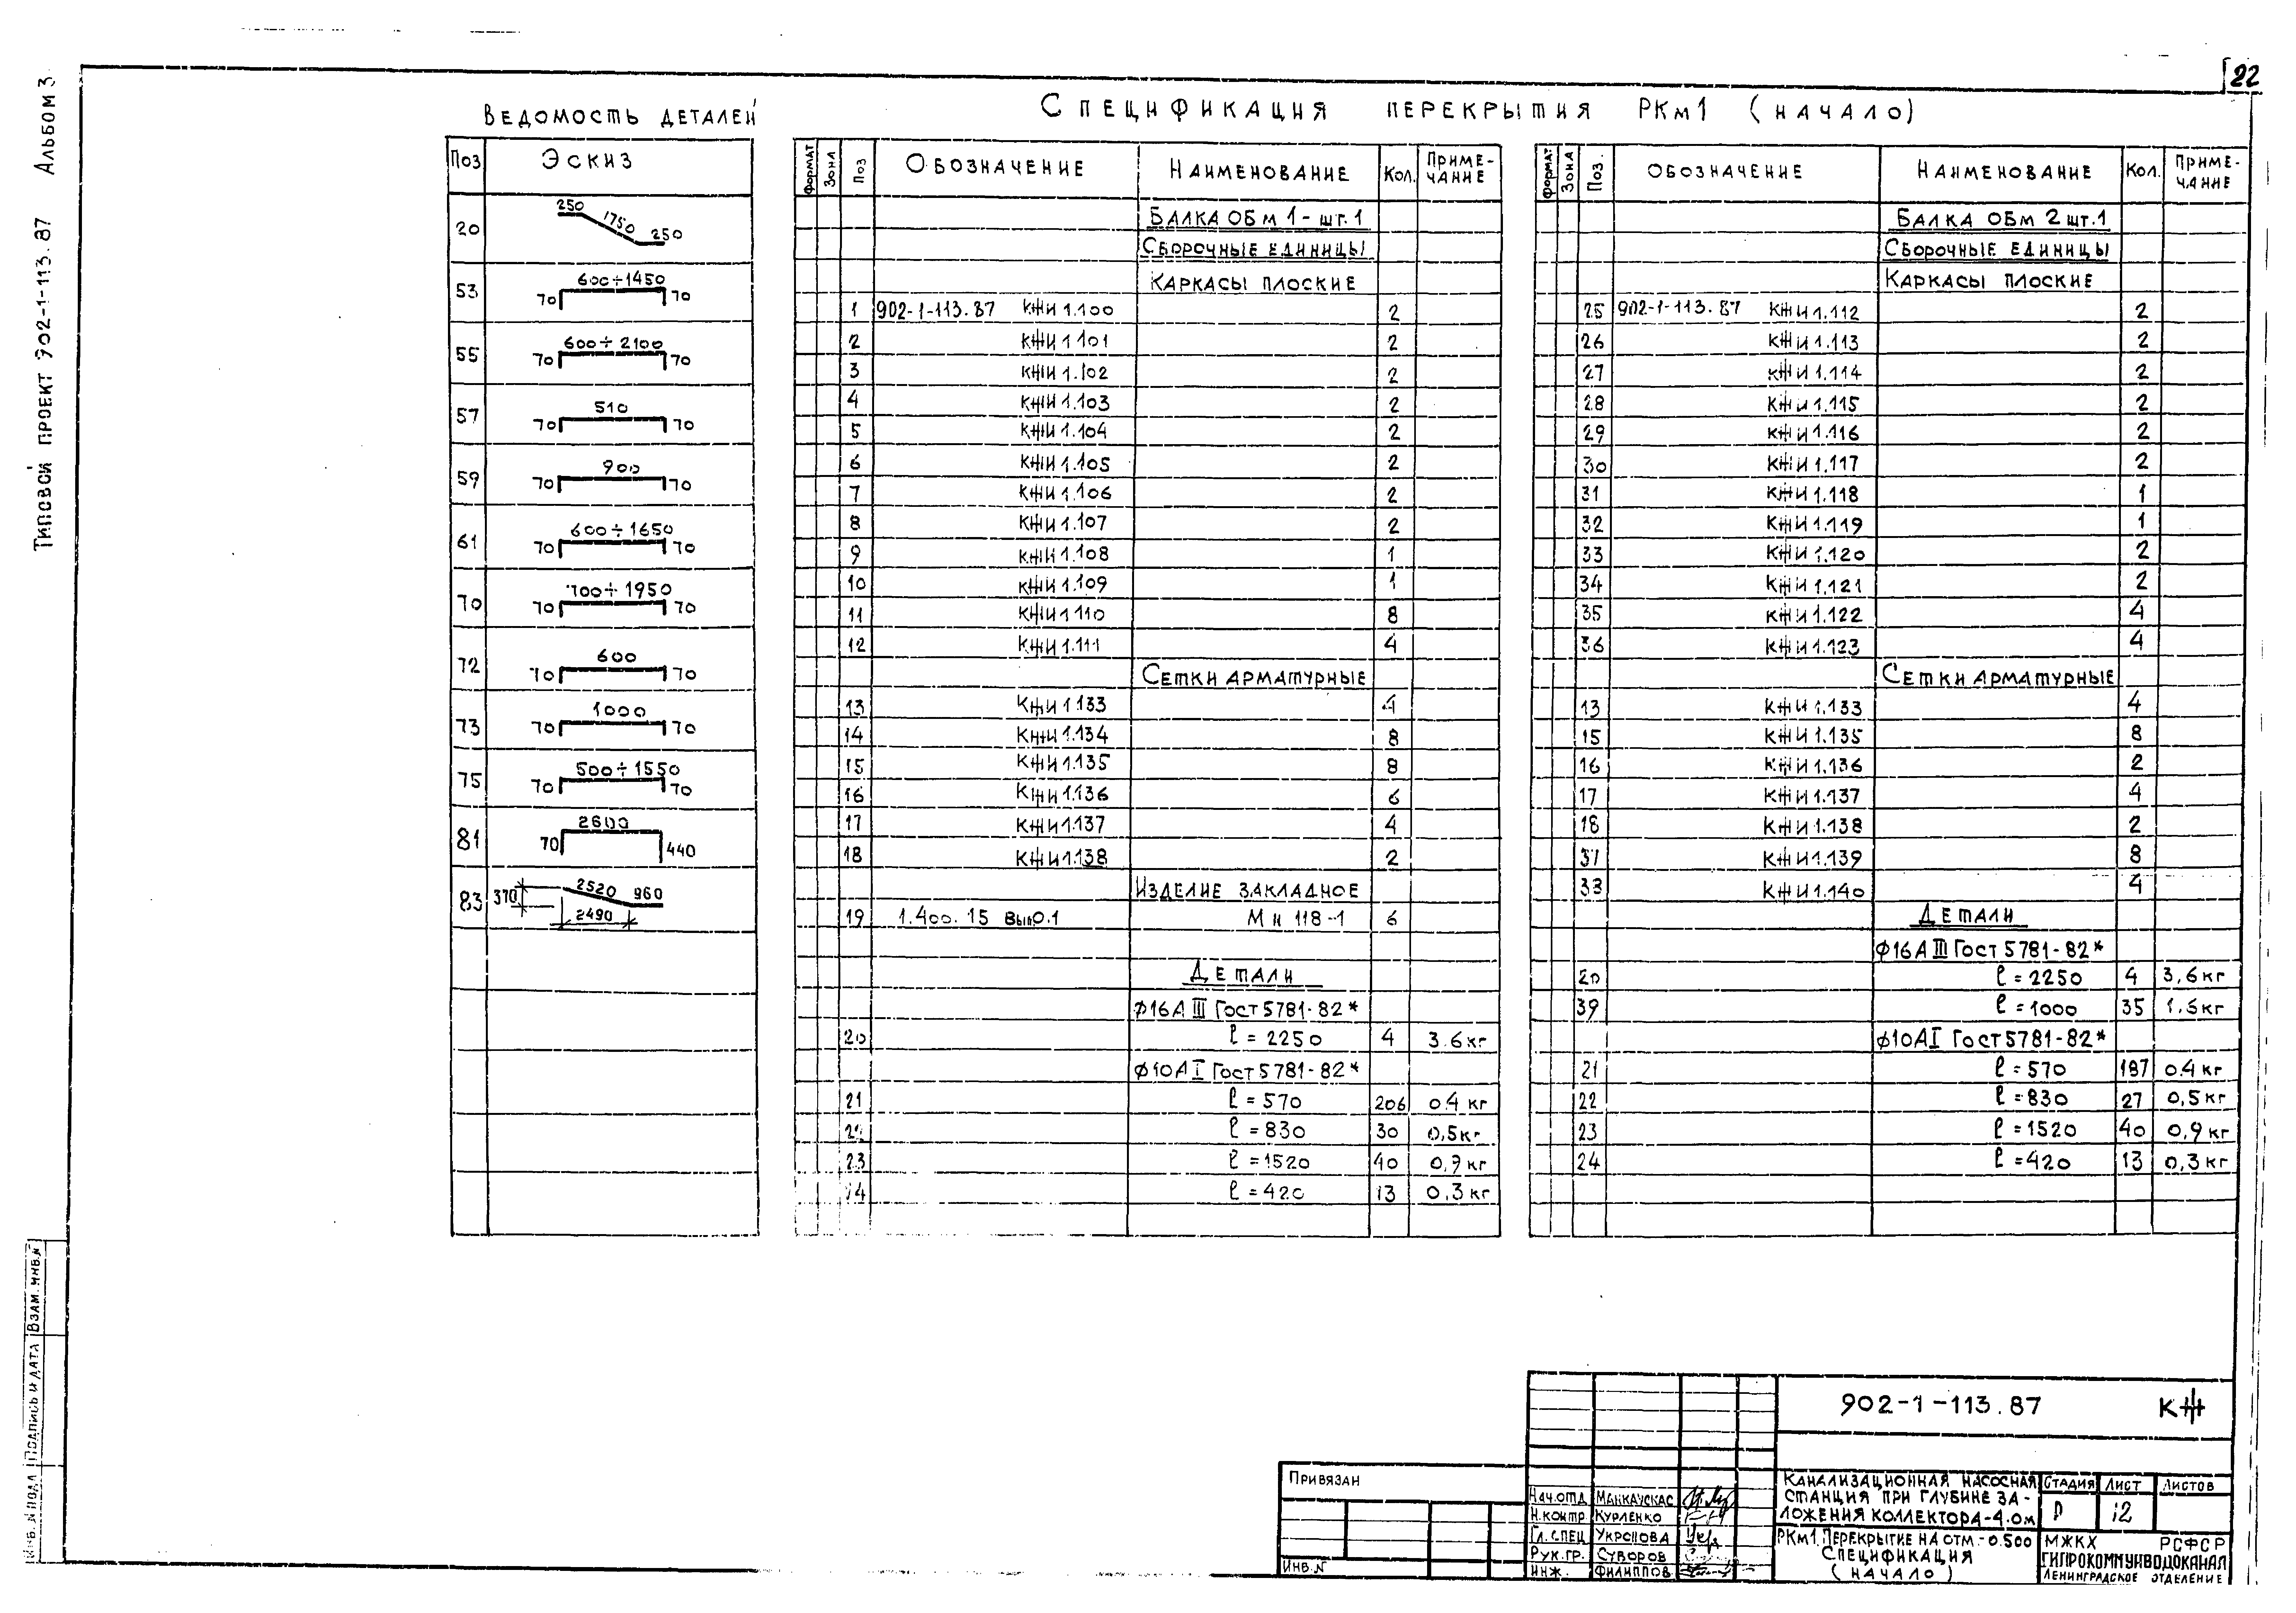 22
Типовой проект 902-1-113.87 Альбом 3
Ведомость деталей
Поз Эскиз
20 250 1750 250
53 70 600÷1450 70
55 70 600÷2100 70
57 70 510 70
59 70 900 70
61 70 600÷1650 70
70 70 700÷1950 70
72 70 600 70
73 70 1000 70
75 70 500÷1550 70
81 70 2600 440
83 370 2520 960 2490
Спецификация перекрытия РКм1 (начало)
Формат Зона Поз Обозначение Наименование Кол. Приме-чание
Балка ОБм 1 - шт. 1
Сборочные единицы
Каркасы плоские
1 902-1-113.87 КЖИ 1.100 2
2 КЖИ 1.101 2
3 КЖИ 1.102 2
4 КЖИ 1.103 2
5 КЖИ 1.104 2
6 КЖИ 1.105 2
7 КЖИ 1.106 2
8 КЖИ 1.107 2
9 КЖИ 1.108 1
10 КЖИ 1.109 1
11 КЖИ 1.110 8
12 КЖИ 1.111 4
Сетки арматурные
13 КЖИ 1.133 4
14 КЖИ 1.134 8
15 КЖИ 1.135 8
16 КЖИ 1.136 6
17 КЖИ 1.137 4
18 КЖИ 1.138 2
Изделие закладное
19 1.400.15 вып.0.1 Мн 118-1 6
Детали
ф16АIII Гост 5781-82*
20 ℓ=2250 4 3.6кг
ф10АI Гост 5781-82*
21 ℓ=570 206 0.4 кг
22 ℓ=830 30 0,5кг
23 ℓ=1520 40 0,9кг
24 ℓ=420 13 0.3кг
Формат Зона Поз. Обозначение Наименование Кол. Приме-чание
Балка ОБм 2 шт.1
Сборочные единицы
Каркасы плоские
25 902-1-113.87 КЖИ 1.112 2
26 КЖИ 1.113 2
27 КЖИ 1.114 2
28 КЖИ 1.115 2
29 КЖИ 1.116 2
30 КЖИ 1.117 2
31 КЖИ 1.118 1
32 КЖИ 1.119 1
33 КЖИ 1.120 2
34 КЖИ 1.121 2
35 КЖИ 1.122 4
36 КЖИ 1.123 4
Сетки арматурные
13 КЖИ 1.133 4
15 КЖИ 1.135 8
16 КЖИ 1.136 2
17 КЖИ 1.137 4
18 КЖИ 1.138 2
37 КЖИ 1.139 8
38 КЖИ 1.140 4
Детали
ф16АIII Гост 5781-82*
20 ℓ=2250 4 3,6кг
39 ℓ=1000 35 1.6кг
ф10АI Гост 5781-82*
21 ℓ=570 187 0.4 кг
22 ℓ=830 27 0,5кг
23 ℓ=1520 40 0,9кг
24 ℓ=420 13 0,3кг
Инв.№ подл Подпись и дата Взам. инв.№
Привязан
Инв.№
Нач.отд Манкаускас
Н.контр. Курленко
Гл.спец Укропова
Рук.гр. Суворов
Инж. Филиппов
902-1-113.87 КЖ
Канализационная насосная
станция при глубине за-
ложения коллектора-4.0м
Стадия Лист Листов
Р 12
РКм1. Перекрытие на отм.-0.500
Спецификация
(начало)
МЖКХ РСФСР
Гипрокоммунводоканал
Ленинградское отделение